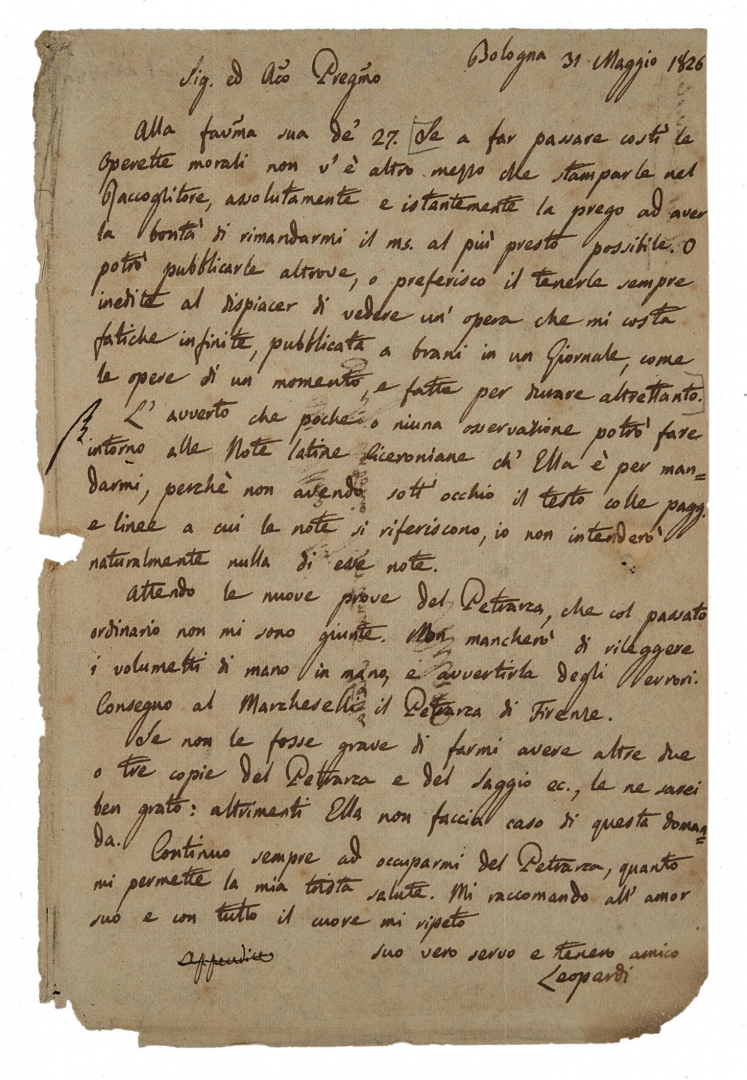 Bologna 31 Maggio 1826
Sig. ed Aco Pregmo
Alla favma sua de' 27. [Se a far passare costì le
Operette morali non v'è altro mezzo che stamparle nel
Raccoglitore, assolutamente e istantemente la prego ad aver
la bontà di rimandarmi il ms. al più presto possibile. O
potrò pubblicarle altrove, o preferisco il tenerle sempre
inedite al dispiacer di vedere un' opera che mi costa
fatiche infinite, pubblicata a brani in un Giornale, come
le opere di un momento, e fatte per durare altrettanto.]
L' avverto che poche o niuna osservazione potrò fare
intorno alle Note latine Ciceroniane ch' Ella è per man=
darmi, perchè non avendo sott' occhio il testo colle pagg.
e linee a cui le note si riferiscono, io non intenderò
naturalmente nulla di esse note.
Attendo le nuove prove del Petrarca, che col passato
ordinario non mi sono giunte. Non mancherò di rileggere
i volumetti di mano in mano, e avvertirla degli errori.
Consegno al Marcheselli il Petrarca di Firenze.
Se non le fosse grave di farmi avere altre due
o tre copie del Petrarca e del Saggio ec., le ne sarei
ben grato: altrimenti Ella non faccia caso di questa doman=
da. Continuo sempre ad occuparmi del Petrarca, quanto
mi permette la mia trista salute. Mi raccomando all' amor
suo e con tutto il cuore mi ripeto
suo vero servo e tenero amico
Appendice
Leopardi